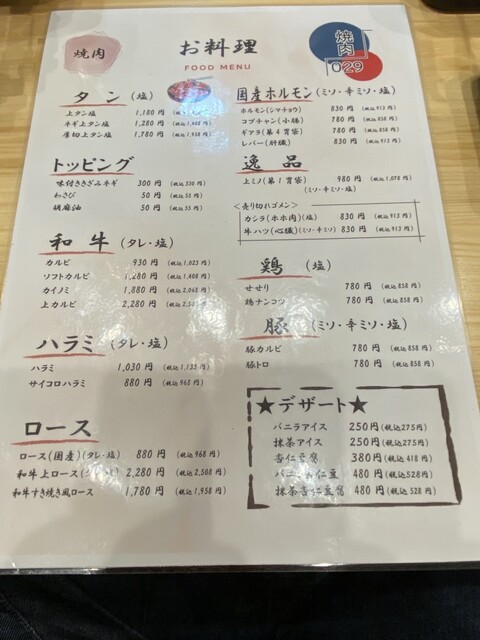 焼肉
お料理
FOOD MENU
焼肉
029
タン(塩)
上タン塩 1,180円
ネギ上タン塩 1,280円 (税込1,408円)
厚切上タン塩 1,780円 (税込1,958円)
トッピング
味付きざみネギ 300円 (税込330円)
わさび 50円 (税込55円)
胡麻油 50円 (税込55円)
和牛(タレ・塩)
カルビ 930円 (税込1,023円)
ソフトカルビ 1,280円 (税込1,408円)
カイノミ 1,880円 (税込2,068円)
上カルビ 2,280円
ハラミ(タレ・塩)
ハラミ 1,030円 (税込1,133円)
サイコロハラミ 880円 (税込968円)
ロース
ロース(国産)(タレ・塩) 880円 (税込968円)
和牛上ロース 2,280円 (税込2,508円)
和牛すき焼き風ロース 1,780円 (税込1,958円)
国産ホルモン(ミソ・辛ミソ・塩)
ホルモン(シマチョウ) 830円 (税込913円)
コプチャン(小腸) 780円 (税込858円)
ギアラ(第4胃袋) 780円 (税込858円)
レバー(肝臓) 830円 (税込913円)
逸品
上ミノ(第1胃袋) 980円 (税込1,078円)
(ミソ・辛ミソ・塩)
<売り切れゴメン>
カシラ(ホホ肉)(塩) 830円 (税込913円)
牛ハツ(心臓)(ミソ・辛ミソ) 830円 (税込913円)
鶏(塩)
せせり 780円 (税込858円)
鶏ナンコツ 780円 (税込858円)
豚(ミソ・辛ミソ・塩)
豚カルビ 780円 (税込858円)
豚トロ 780円 (税込858円)
★デザート★
バニラアイス 250円(税込275円)
抹茶アイス 250円(税込275円)
杏仁豆腐 380円(税込418円)
バニラ杏仁豆腐 480円(税込528円)
抹茶杏仁豆腐 480円(税込528円)